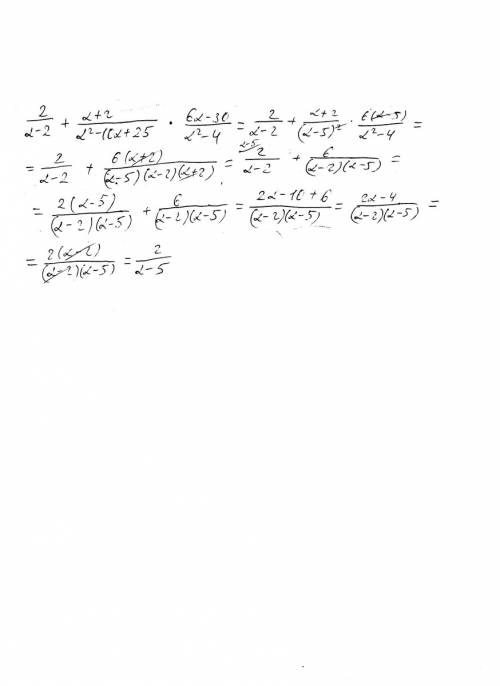 2/(α-2) + (α+2)/(α²-10α+25) · (6α-30)/(α²-4) = 2/(α-2) + (α+2)/(α-5)² · 6(α-5)/(α²-4) =
= 2/(α-2) + 6(α+2)/((α-5)(α-2)(α+2)) = α-5/ 2/(α-2) + 6/((α-2)(α-5)) =
= 2(α-5)/((α-2)(α-5)) + 6/((α-2)(α-5)) = (2α-10+6)/((α-2)(α-5)) = (2α-4)/((α-2)(α-5)) =
= 2(α-2)/((α-2)(α-5)) = 2/(α-5)